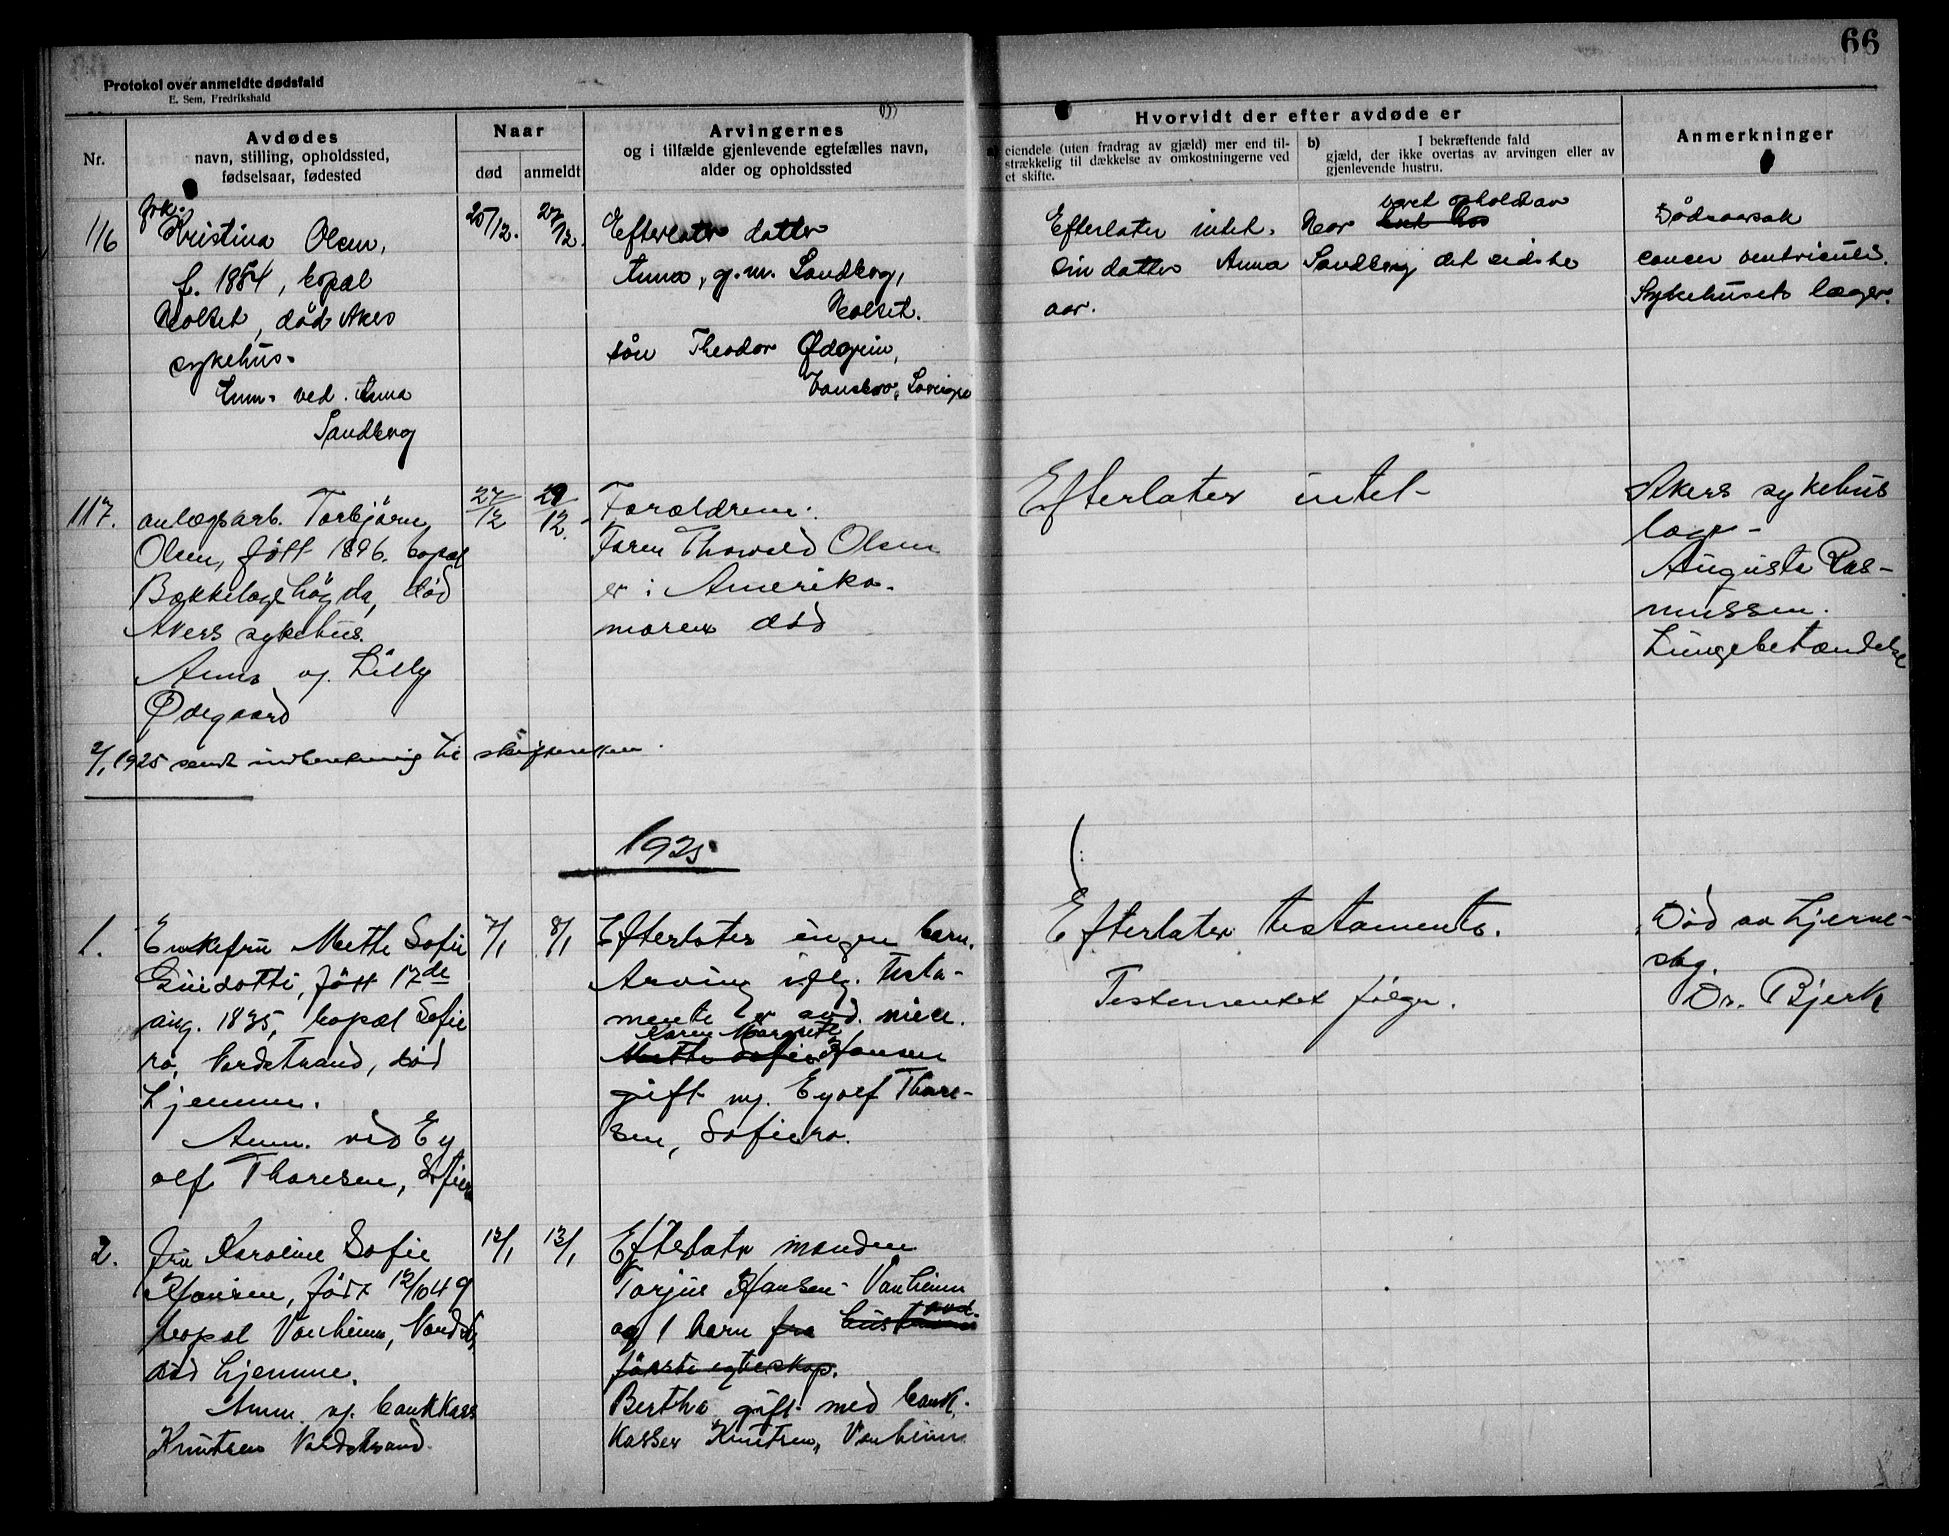 66
Protokol over anmeldte dødsfald
E. Sem, Fredrikshald
Nr.
Avdødes
navn, stilling, opholdssted,
fødselsaar, fødested
Naar
død
anmeldt
Arvingernes
og i tilfælde gjenlevende egtefælles navn,
alder og opholdssted
Hvorvidt der efter avdøde er
eiendele (uten fradrag av gjæld) mer end til-
strækkelig til dækkelse av omkostningerne ved
et skifte.
b) I bekræftende fald
gjæld, der ikke overtas av arvingen eller av
gjenlevende hustru.
Anmerkninger
116
frk.
Kristina Olsen,
f. 1854, bopæl
Holset, død Akers
sykehus.
Anm. ved. Anna
Sandberg
25/12.
27/12.
Efterlater datter
Anna, g.m. Sandberg,
Holset.
søn Theodor
Efterlater intet. Har været opholdt av
sin datter Anna Sandberg det sidste
aar.
Dødsaarsak
cancer ventriculi.
Sykehusets læger.
117.
anlægsarb. Torbjørn
Olsen, født 1896. bopæl
Bækkelagshøgda, død
Akers sykehus.
Anm. af. Lilly
Ødegaard
27/12
29/12.
Forældrene.
Faren Thorvald Olsen
er i Amerika.
moren død
Efterlater intet-
Akers sykehus
læge-
Augusta Ras-
mussen.
Lungebetændelse
2/1 1925 sendt indberetning til skifteretten.
1925
1.
Enkefru Mette Sofie
Guidotti, født 17de
aug. 1835, bopæl Sofie
ro, Nordstrand, død
hjemme.
Anm. ved Ey
olf Thoresen, Sofiero
7/1
8/1
Efterlater ingen barn.
Arving iflg. testa-
mente er avd. niece.
Karen Margrethe
Mette Sofie Hansen
gift m. Eyolf Thore-
sen, Sofiero.
Efterlater testamente.
Testamentet følger.
Død av hjerne-
slag.
Dr. Bjerk
2.
fru Karoline Sofie
Hansen, født 12/10 49
bopæl Vanheim, Nordstr,
død hjemme.
Anm. af. bankkass
Knutsen Nordstrand.
12/1
13/1
Efterlater manden
Torjus Hansen- Vanheim
og 1 barn fra avd.
første egteskap.
Bertha gift med bank.
kasser Knutsen, Vanheim